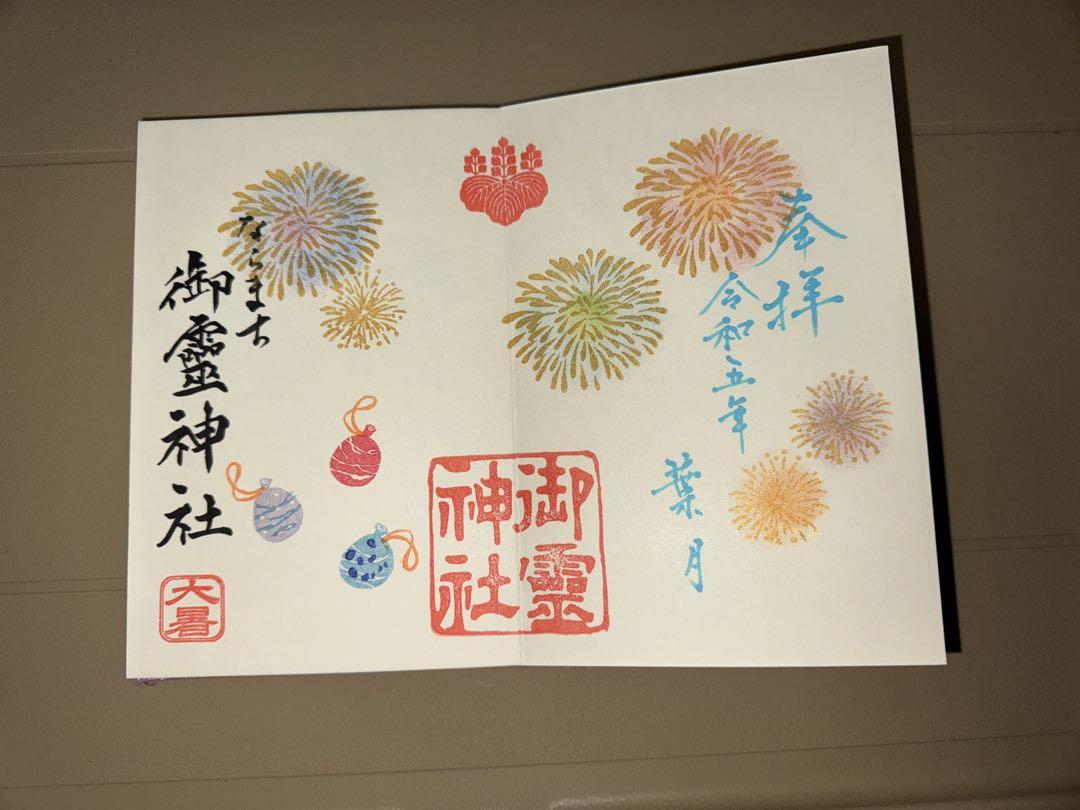 奉拝
令和五年
葉月
御靈
神社
ならまち
御靈神社
大暑